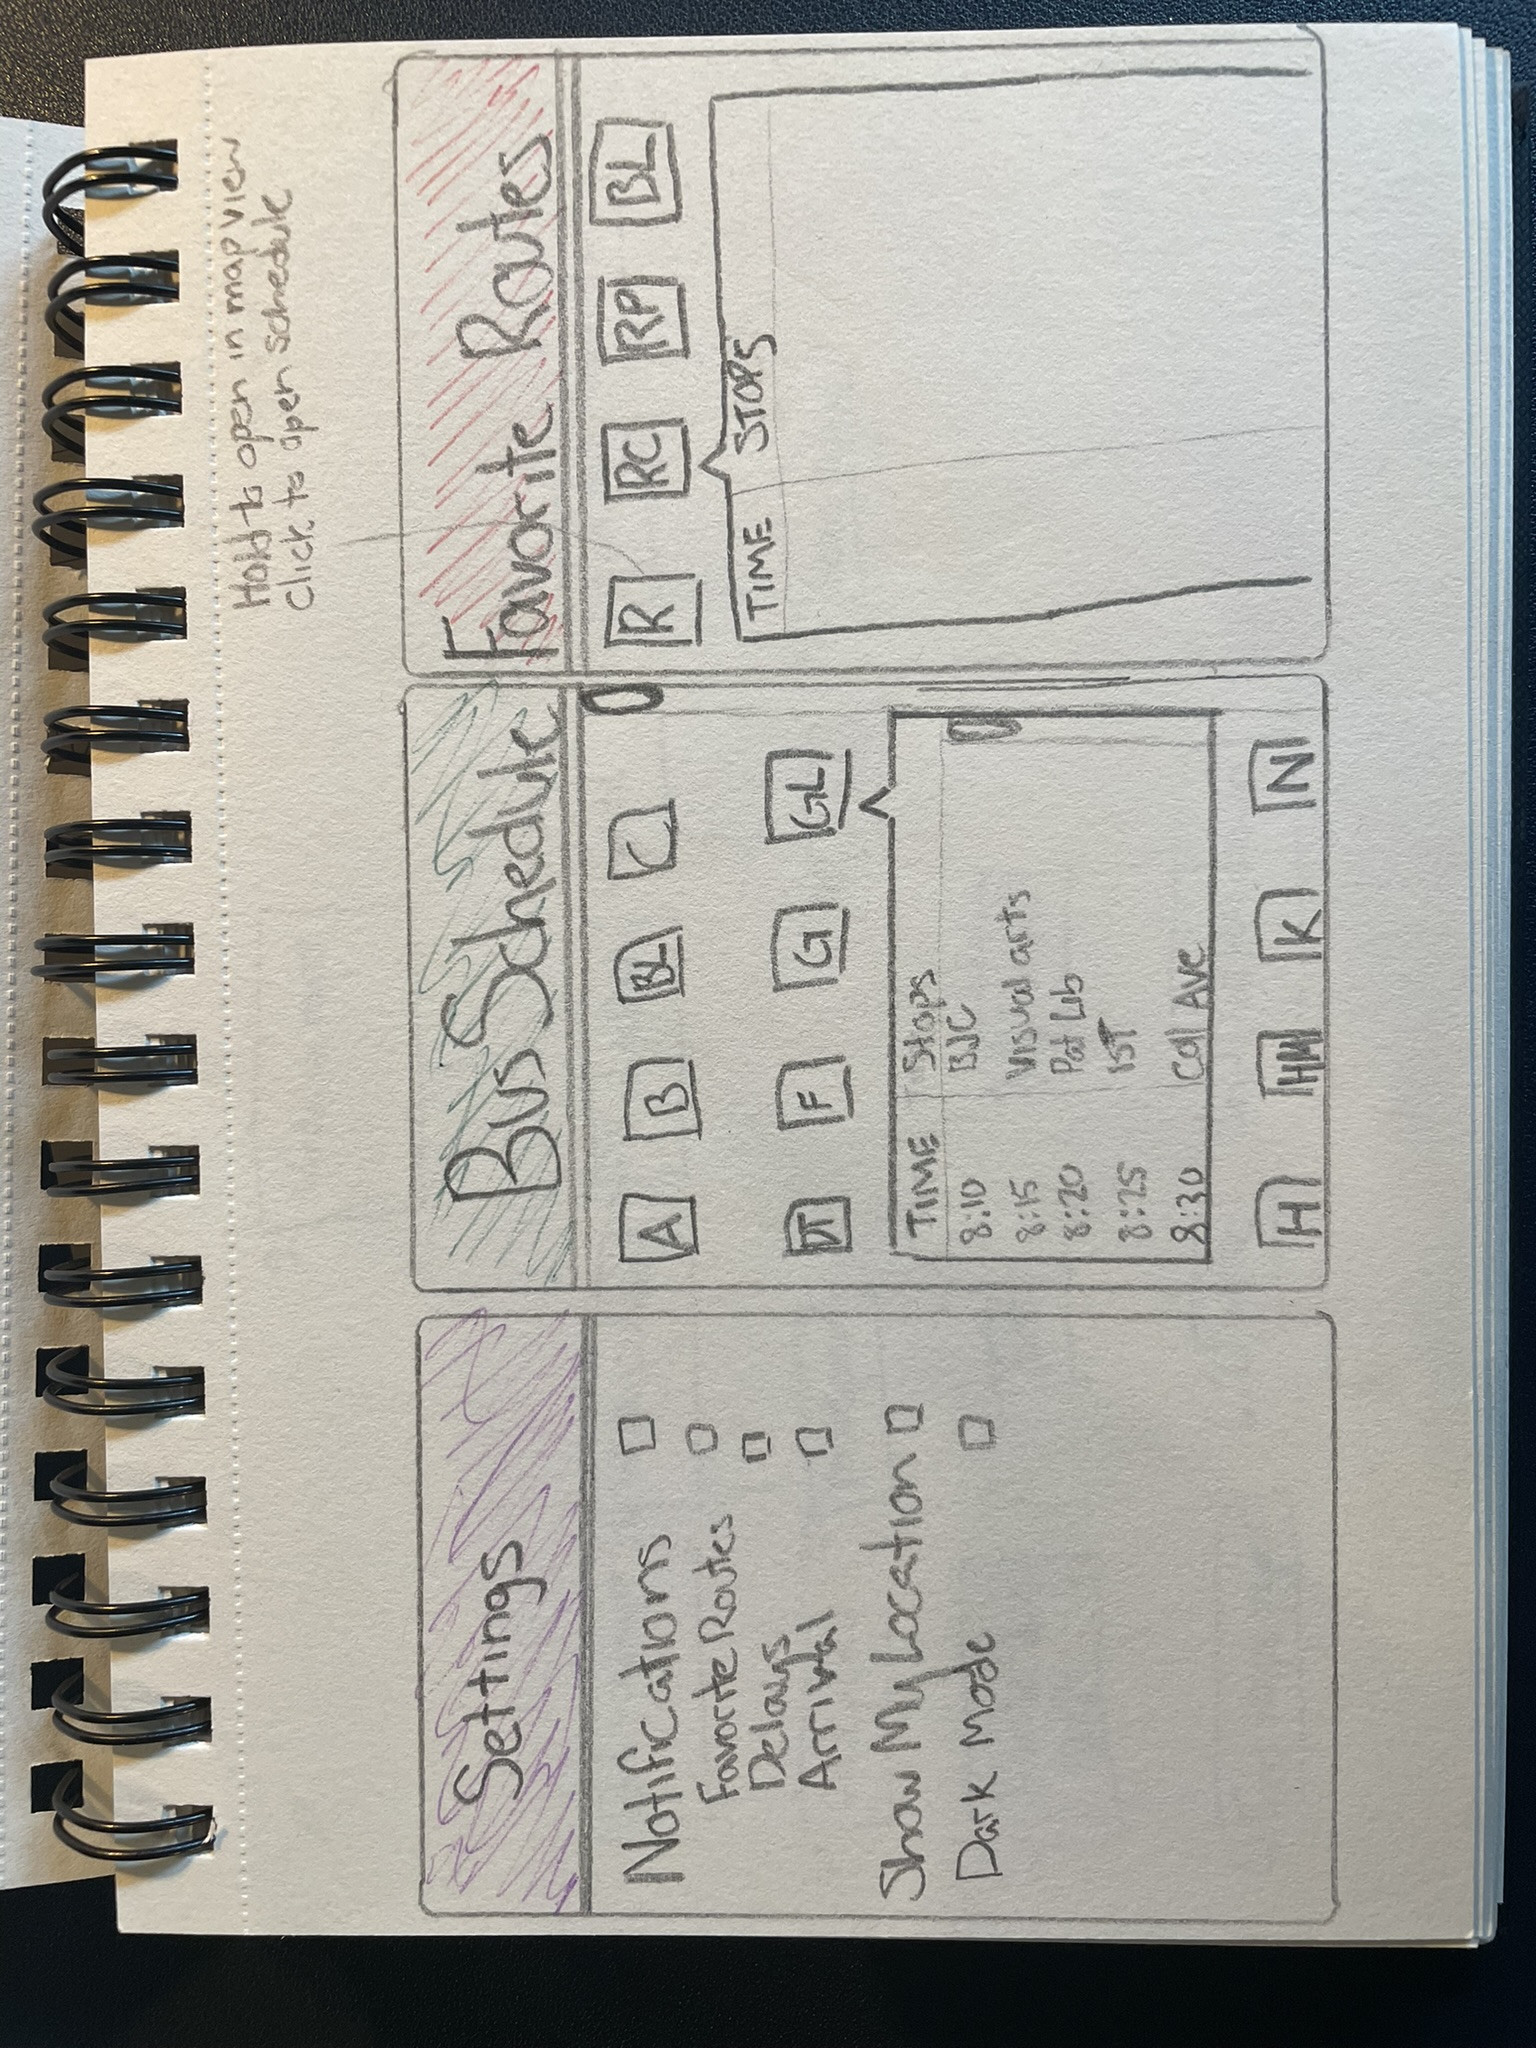 Hold to open in map view
Click to open schedule
Settings
Notifications
Favorite Routes
Delays
Arrival
Show My Location
Dark Mode
Bus Schedule
A B BL C
DT F G GL
TIME Stops
8:10 BJC
8:15 Visual arts
8:20 Pat Lib
8:25 IST
8:30 Col Ave
H HM K N
Favorite Routes
R RC RP BL
TIME STOPS